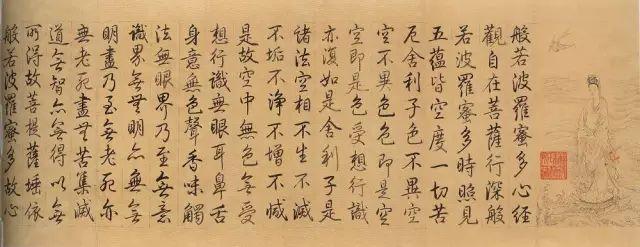 般若波羅蜜多心經
觀自在菩薩行深般
若波羅蜜多時照見
五蘊皆空度一切苦
厄舍利子色不異空
空不異色色即是空
空即是色受想行識
亦復如是舍利子是
諸法空相不生不滅
不垢不淨不增不減
是故空中無色無受
想行識無眼耳鼻舌
身意無色聲香味觸
法無眼界乃至無意
識界無無明亦無無
明盡乃至無老死亦
無老死盡無苦集滅
道無智亦無得以無
所得故菩提薩埵依
般若波羅蜜多故心